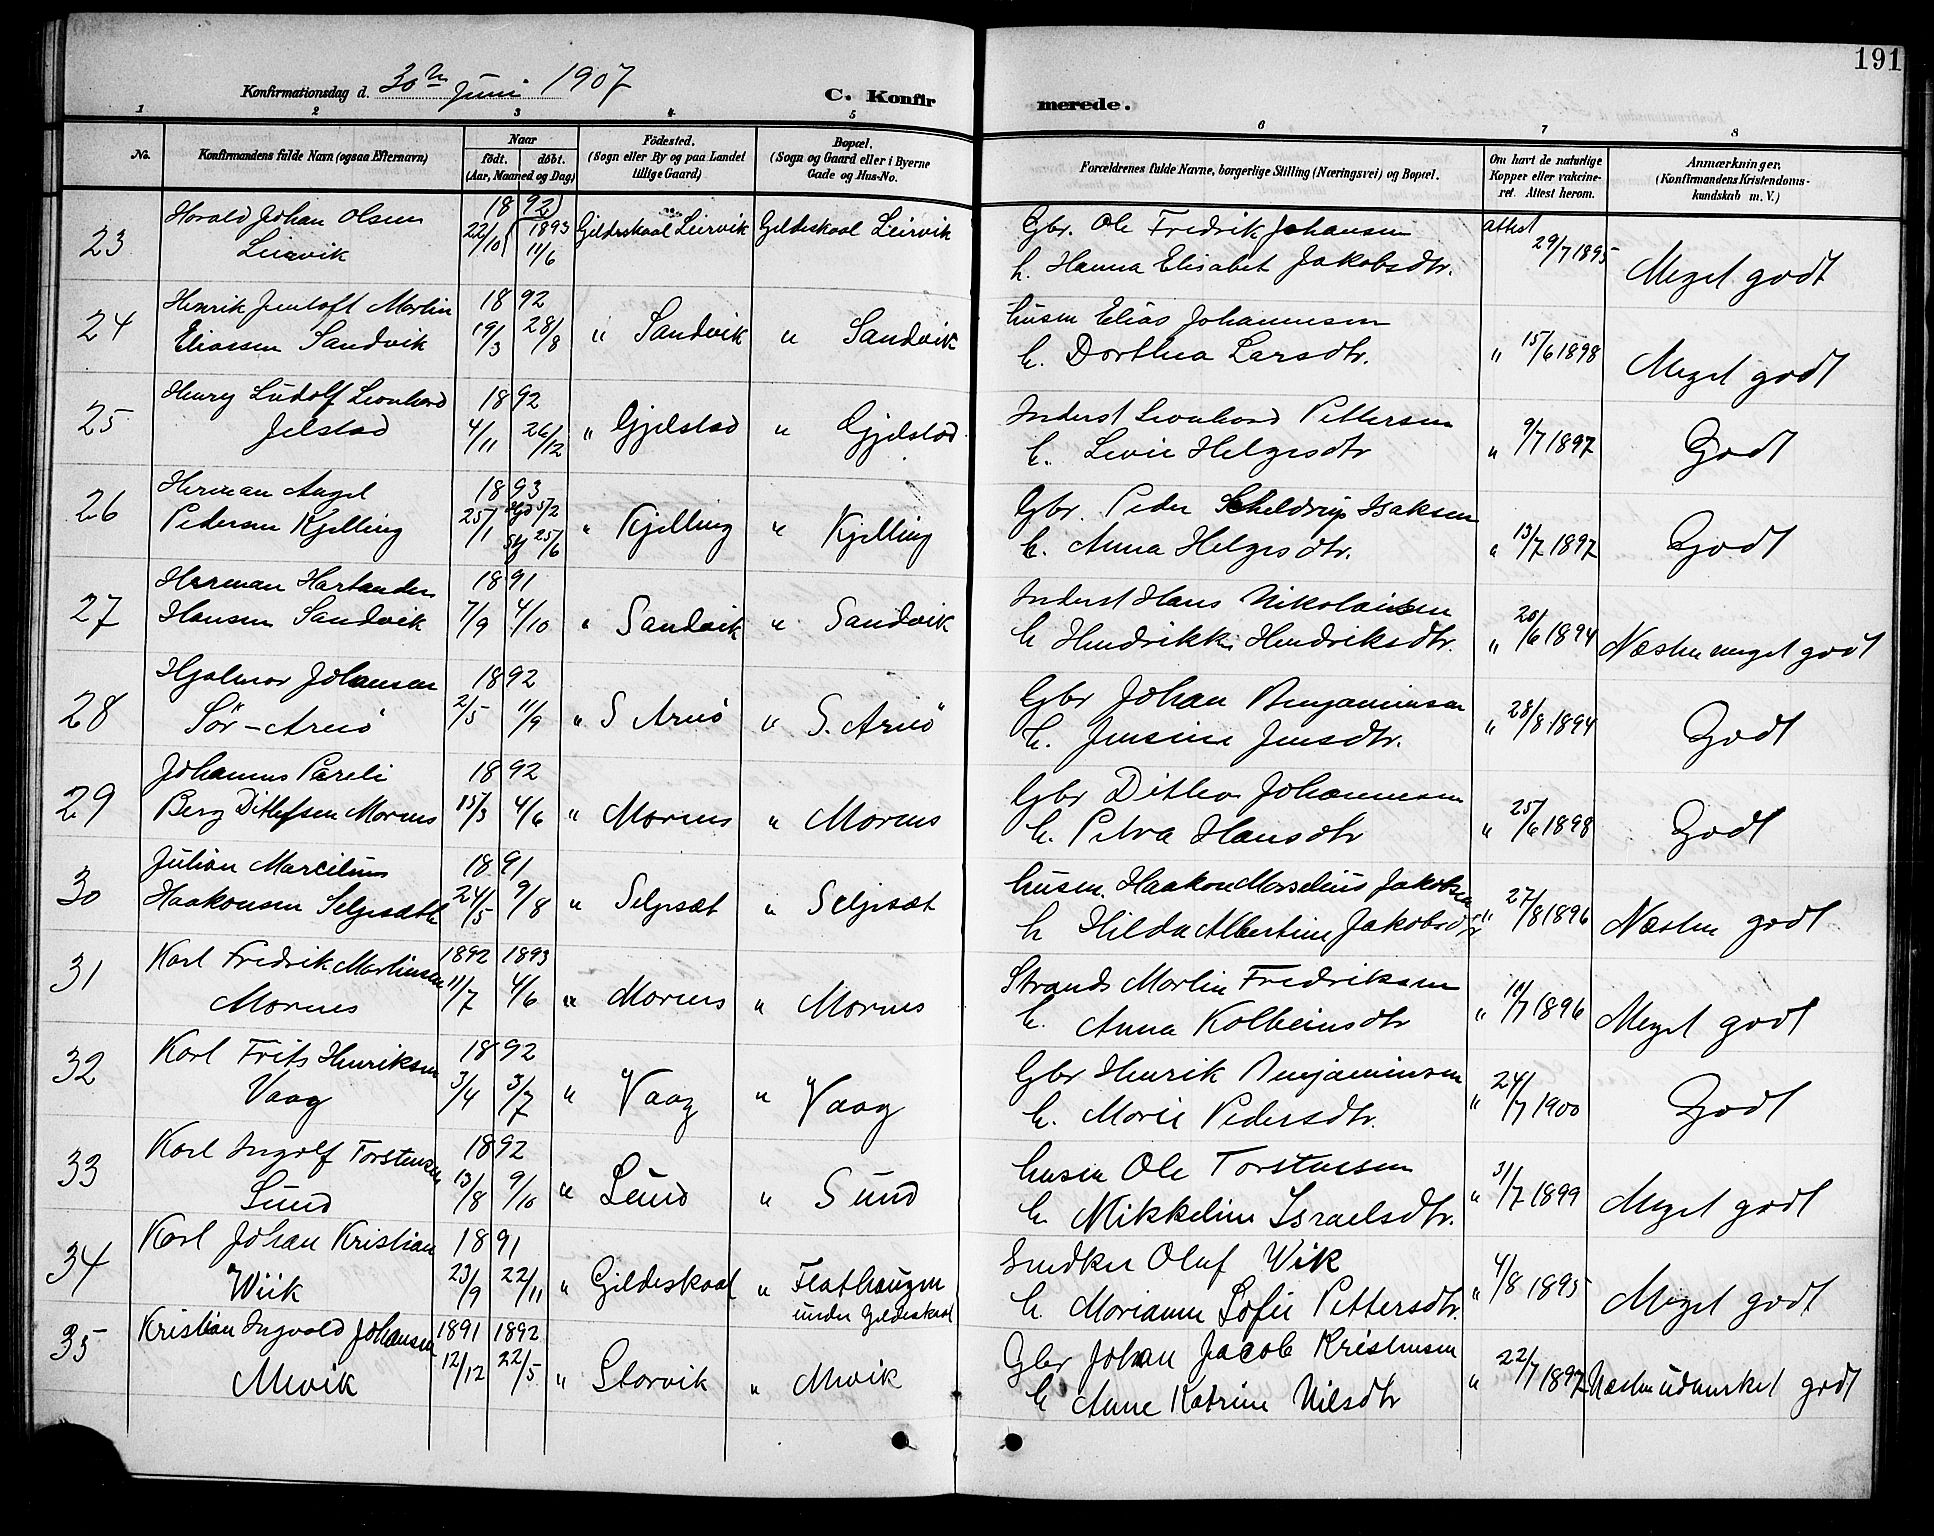 191
Konfirmationsdag d. 30te Juni 1907
C. Konfirmerede.
1 2 3 4 5 6 7 8
No. Konfirmandens fulde Navn (ogsaa Efternavn) Naar født. døbt. (Aar, Maaned og Dag) Fødested. (Sogn eller By og paa Landet tillige Gaard) Bopæl. (Sogn og Gaard eller i Byerne Gade og Hus-No. Forældrenes fulde Navne, borgerlige Stilling (Næringsvei) og Bopæl. Om havt de naturlige Kopper eller vakcineret. Attest herom. Anmærkninger. (Konfirmandens Kristendomskundskab m. V.)
Harald Johan Olsen 1892 1893 Gbr. Ole Fredrik Johansen attest
23 Leirvik 22/10 11/6 Gildeskaal Leirvik Gildeskaal Leirvik h. Hanna Elisabet Jakobsdtr. 29/7 1895 Meget godt
Henrik Jentoft Martin 1892 husm Elias Johannesen
24 Eliassen Sandvik 19/3 28/8 " Sandvik " Sandvik h. Dorthea Larsdtr. " 15/6 1898 Meget godt
Henry Ludolf Leonhard 1892 Inderst Leonhard Pettersen
25 Jelstad 4/11 26/12 " Gjelstad " Gjelstad h. Levie Helgesdtr " 9/7 1897 Godt
Herman Angel 1893 Gbr. Peder Scheldrup Isaksen
26 Pedersen Kjelling 25/1 5/2 25/6 " Kjelling " Kjelling h. Anna Helgesdtr. " 13/7 1897 Godt
Herman Hartander 1891 Inderst Hans Nikolaisen
27 Hansen Sandvik 7/9 4/10 " Sandvik " Sandvik h Hendrikke Hendriksdtr. " 20/6 1894 Næsten meget godt
Hjalmar Johansen 1892 Gbr Johan Benjaminsen
28 Sør-Arnø 2/5 11/9 " S Arnø " S. Arnø h. Jensine Jensdtr. " 28/8 1894 Godt
Johannes Pareli 1892 Gbr Ditlev Johannesen
29 Berg Ditlefsen Mornes 15/3 4/6 " Mornes " Mornes h. Petra Hansdtr " 25/6 1898 Godt
Julian Marcilius 1891 husm. Haakon Marselius Jakobsen
30 Haakonsen Seljesæth 24/5 9/8 " Seljesæt " Seljesæt h Hilda Albertine Jakobsdtr " 27/8 1896 Næsten godt
Karl Fredrik Martinsen 1892 1893 Strands Martin Fredriksen
31 Mornes 11/7 4/6 " Mornes " Mornes h. Anna Kolbeinsdtr " 10/7 1896 Meget godt
Karl Frits Henriksen 1892 Gbr Henrik Benjaminsen
32 Vaag 3/4 3/7 " Vaag " Vaag h. Marie Pedersdtr. " 24/7 1900 Godt
Karl Ingolf Torstensen 1892 husm Ole Torstensen
33 Sund 13/8 9/10 " Sund " Sund h. Mikkeline Israelsdtr. " 31/7 1899 Meget godt
Karl Johan Kristian 1891 Snedker Oluf Wik
34 Wiik 23/9 22/11 " Gildeskaal " Flathaugen under Gildeskaal h Mariann Sofie Pettersdtr. " 4/8 1895 Meget godt
Kristian Ingvald Johansen 1891 1892 Gbr Johan Jacob Kristensen
35 Mevik 12/12 22/5 " Storvik " Mevik h Anne Katrine Nilsdtr " 22/7 1897 Næsten udmerket godt